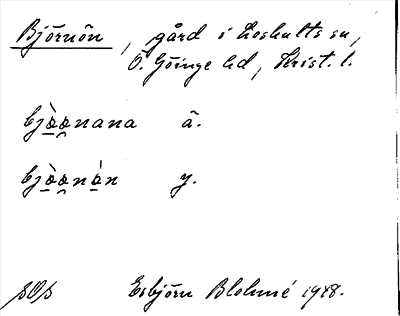 Björnön, gård i Loshults sn,
Ö. Göinge hd, Krist. l.
bjæ̀ænana ä.
bjæ̀ænán y.
Esbjörn Blohmé 1948.